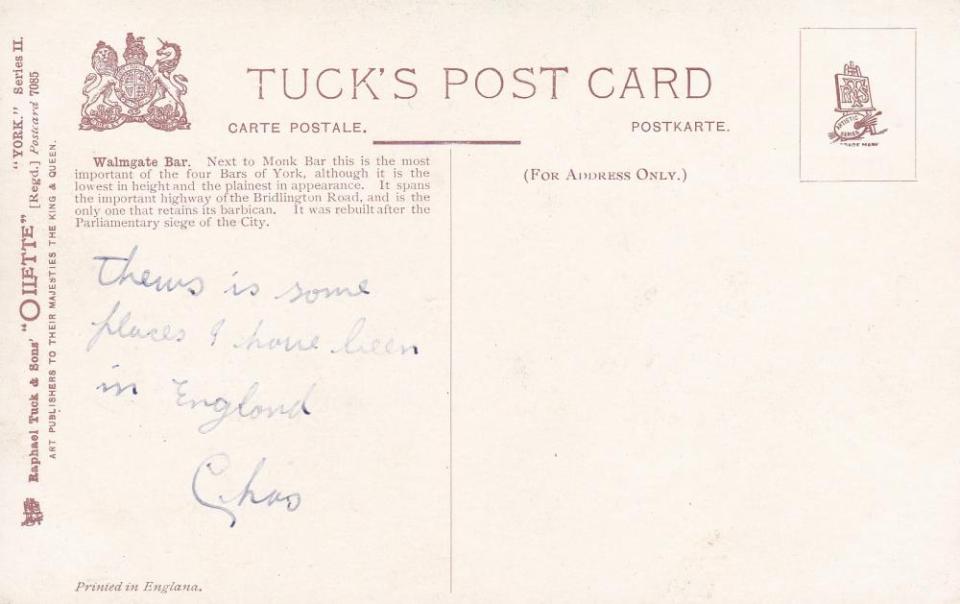 TUCK'S POST CARD
CARTE POSTALE.
POSTKARTE.
(FOR ADDRESS ONLY.)
Walmgate Bar. Next to Monk Bar this is the most
important of the four Bars of York, although it is the
lowest in height and the plainest in appearance. It spans
the important highway of the Bridlington Road, and is the
only one that retains its barbican. It was rebuilt after the
Parliamentary siege of the City.
thews is some
places I have been
in England
Chas
Printed in Englana.
Raphael Tuck & Sons' "OILETTE" [Regd.] Postcard 7085
"YORK." Series II.
ART PUBLISHERS TO THEIR MAJESTIES THE KING & QUEEN.
ARTISTIC
SERIES
TRADE MARK